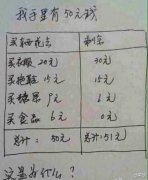 我手里有50元钱
买东西花去 剩余
买衣服 20元 30元
买拖鞋 15元 15元
买糖果 9元 6元
买食品 6元 0元
总计: 50元 总计: 51元
这是为什么?